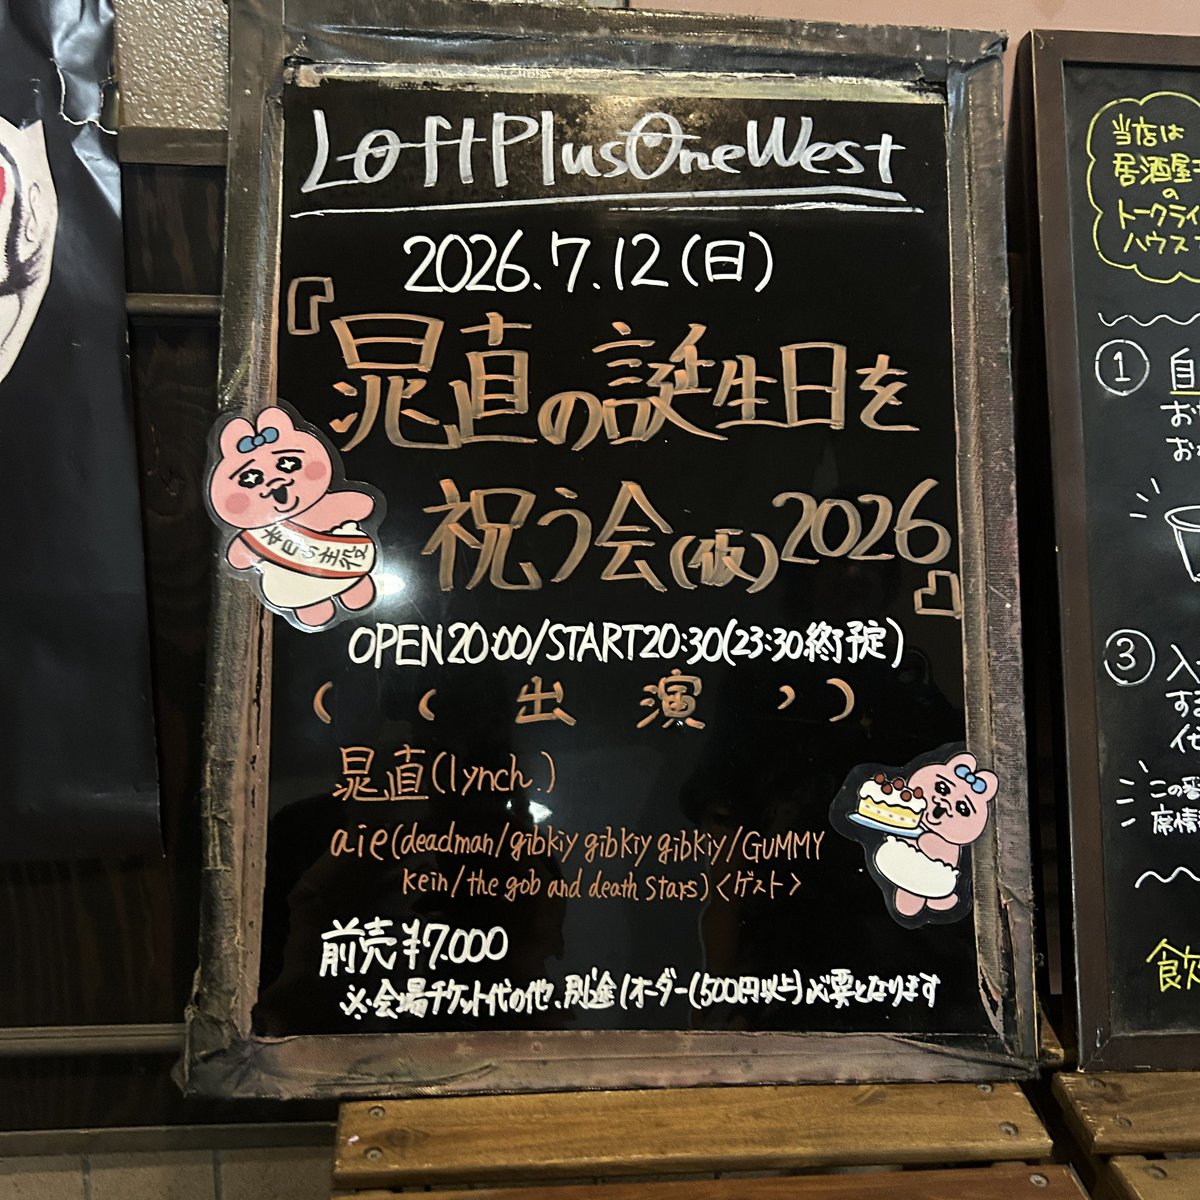 LoftPlusOneWest
2026.7.12(日)
『晁直の誕生日を
祝う会(仮)2026』
本日の主役
OPEN20:00/START20:30(23:30終予定)
((出演))
晁直(lynch.)
aie(deadman/gibkiy gibkiy gibkiy/GUMMY
kein/the god and death stars)<ゲスト>
前売¥7.000
※会場チケット代の他、別途1オーダー(500円以上)必要となります
当店は
居酒屋
の
トークライ
ハウス
①
自
お
お
③
入
す
代
この番
席
飲